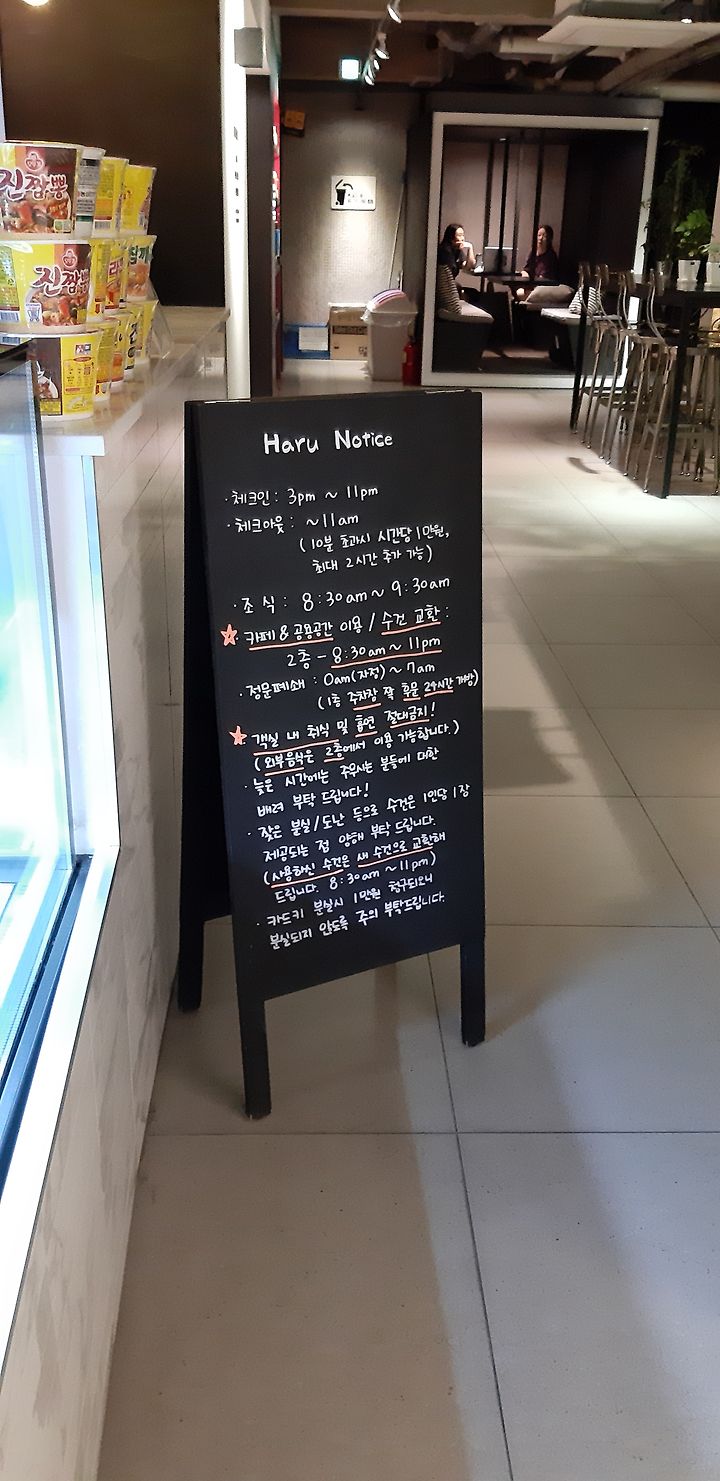 진짬뽕
진짬뽕
Haru Notice
· 체크인 : 3pm ~ 11pm
· 체크아웃 : ~11am
( 10분 초과시 시간당 1만원,
최대 2시간 추가 가능)
· 조식 : 8:30am ~ 9:30am
☆ 카페 & 공용공간 이용 / 수건 교환 :
2층 - 8:30am ~ 11pm
· 정문폐쇄 : 0am(자정) ~ 7am
(1층 주차장 쪽 후문 24시간 개방)
☆ 객실 내 취식 및 흡연 절대금지!
(외부음식은 2층에서 이용 가능합니다.)
· 늦은 시간에는 주무시는 분들에 대한
배려 부탁 드립니다!
· 잦은 분실/도난 등으로 수건은 1인당 1장
제공되는 점 양해 부탁 드립니다.
(사용하신 수건은 새 수건으로 교환해
드립니다. 8:30am ~ 11pm)
· 카드키 분실시 1만원 청구되오니
분실되지 않도록 주의 부탁드립니다.